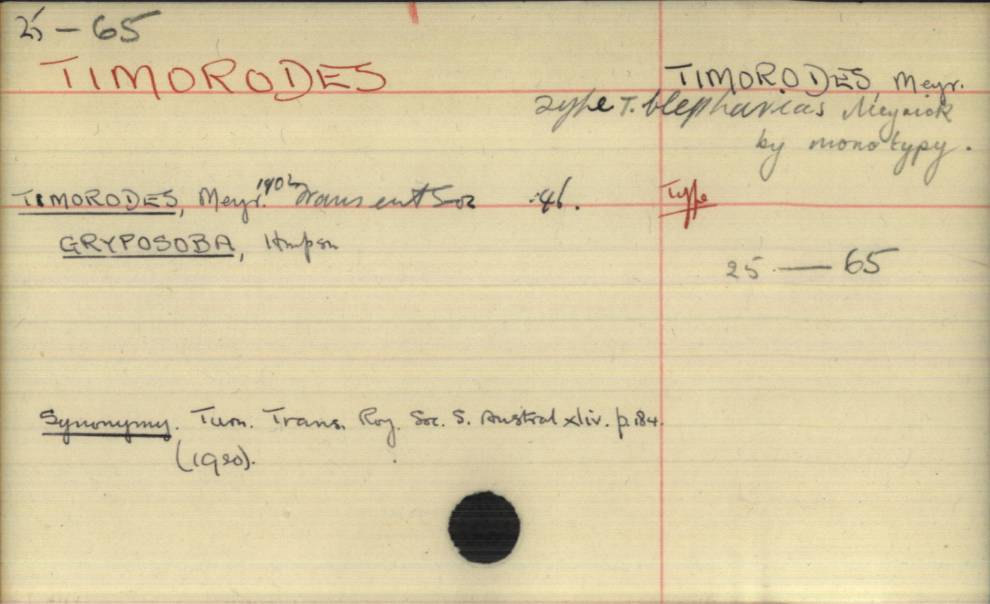 25 — 65
TIMORODES
TIMORODES, Meyr.
Type T. blepharias Meyrick
by monotypy.
TIMORODES, Meyr. 1902 Trans ent Soc 46.
Type
GRYPOSOBA, Hmpsn
25 — 65
Synonymy. Turn. Trans. Roy. Soc. S. Austral xliv. p. 184.
(1920).